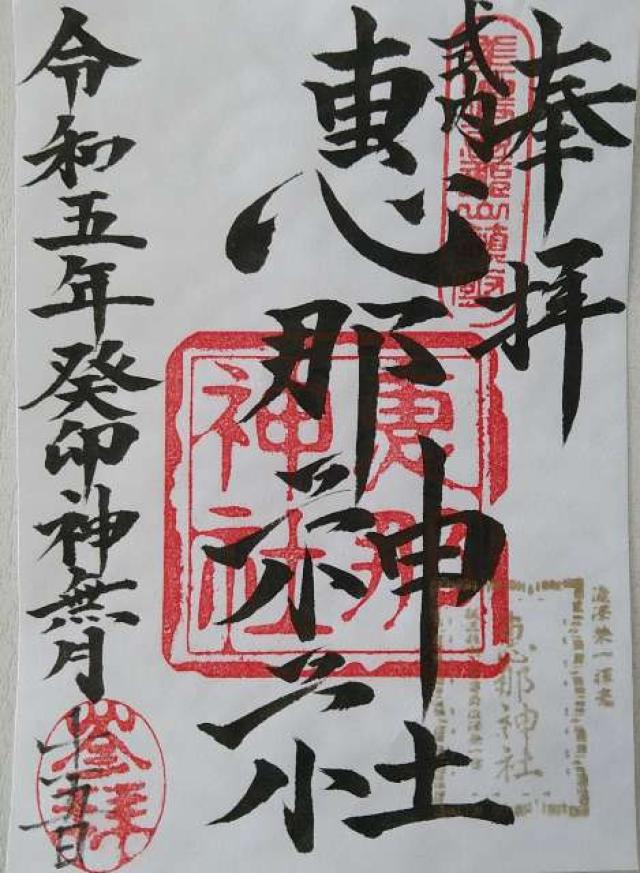 奉拝
式内
恵那神社
令和五年癸卯神無月十五日
恵那
神社
参拝
恵那神社